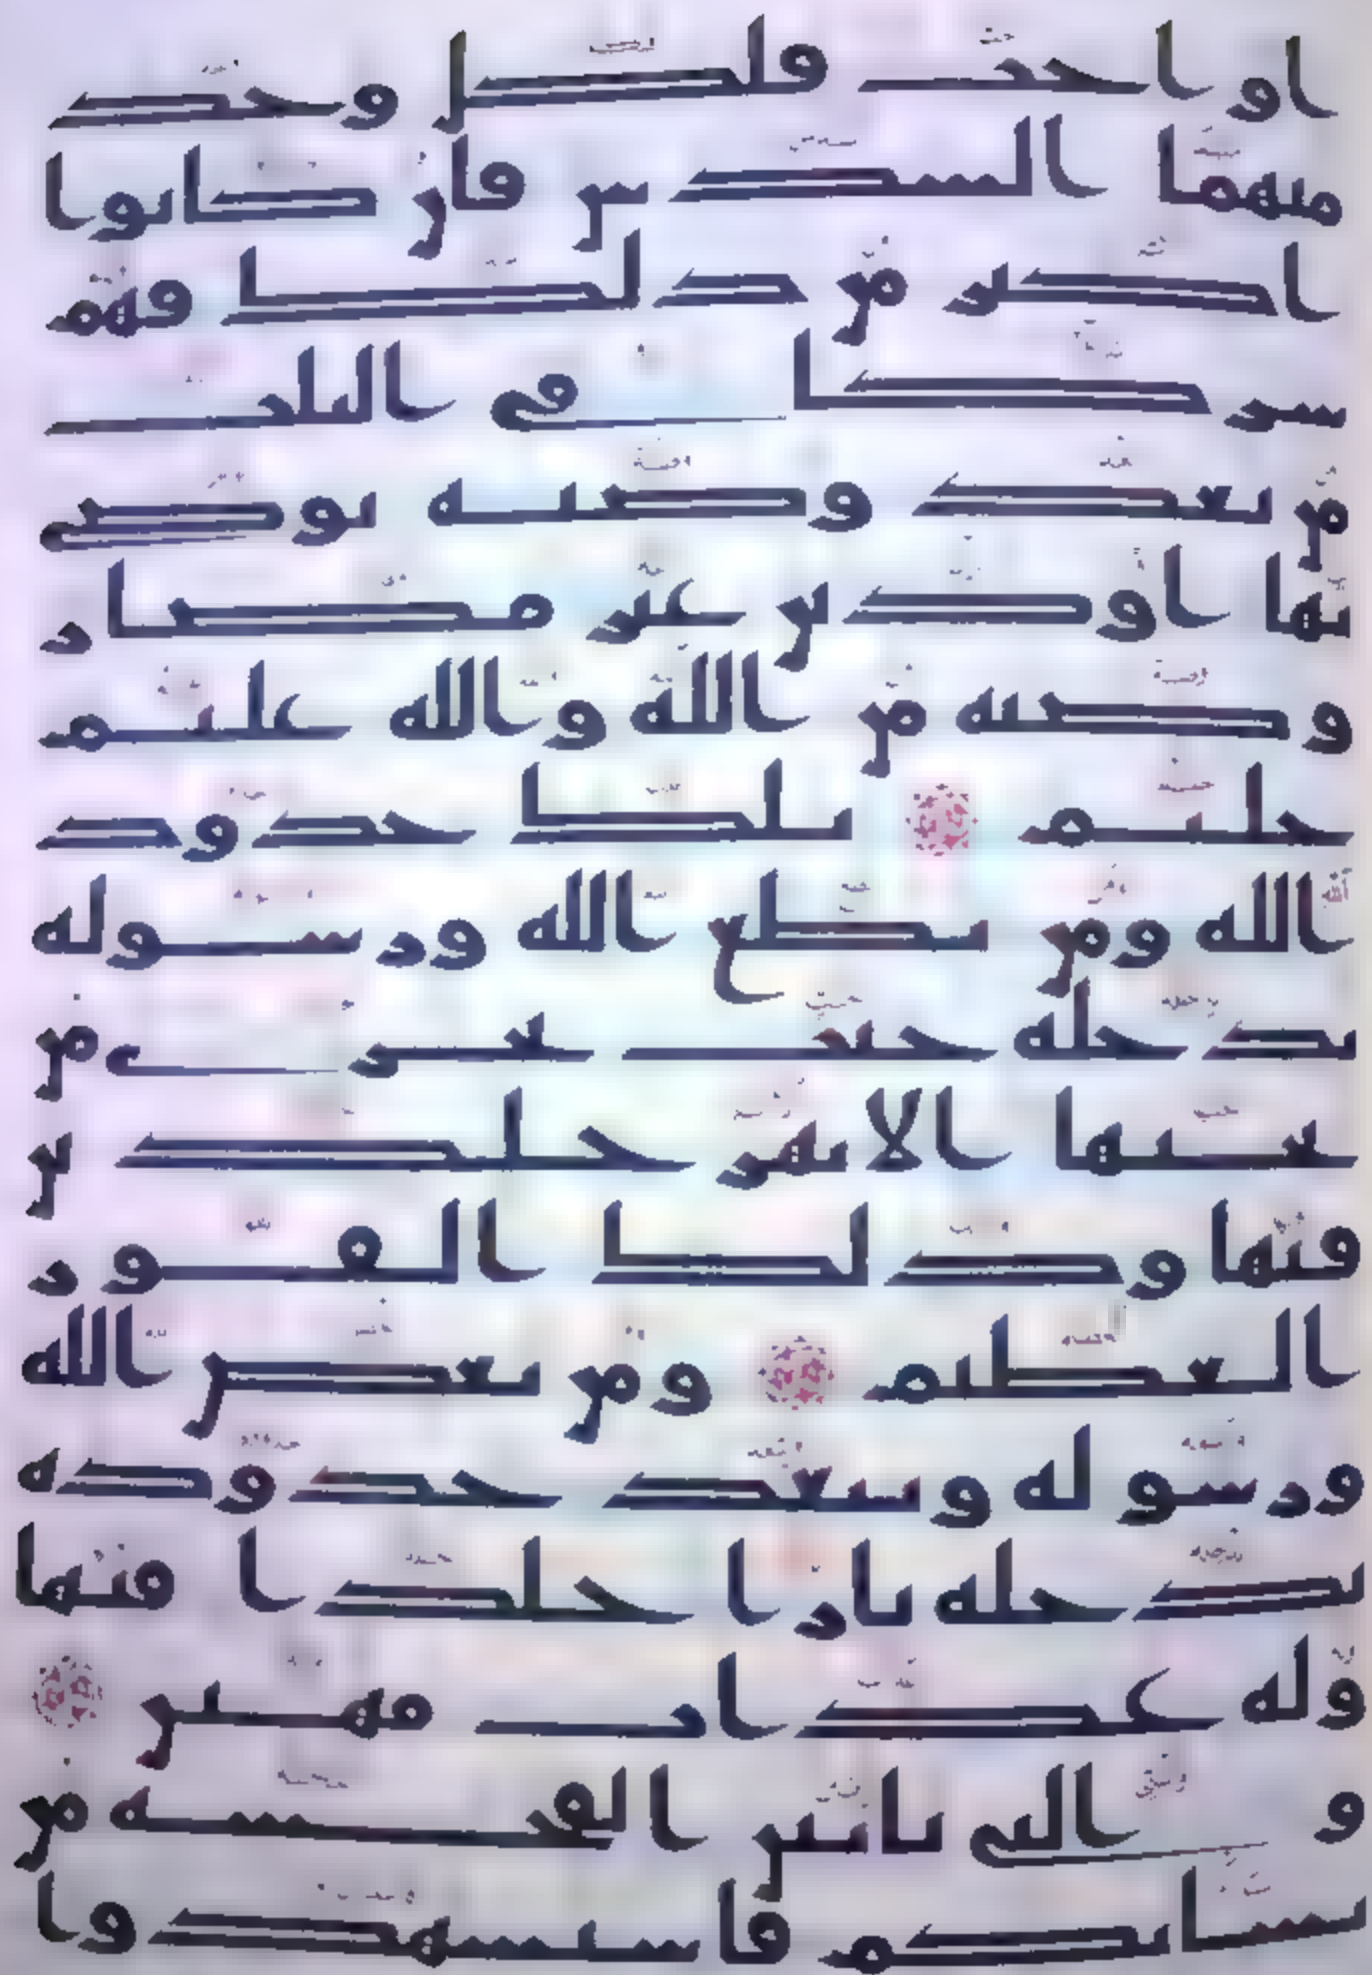 او اخت فلكل وحد
منهما السدس فان كانوا
اكثر من ذلك فهم
شركا في الثلث
من بعد وصية يوصى
بها او دين غير مضار
وصية من الله والله عليم
حليم تلك حدود
الله ومن يطع الله ورسوله
يدخله جنت تجرى من
تحتها الانهر خلدين
فيها وذلك الفوز
العظيم ومن يعص الله
ورسوله ويتعد حدوده
يدخله نارا خلدا فيها
وله عذاب مهين
والتى ياتين الفحشة من
نسايكم فاستشهدوا